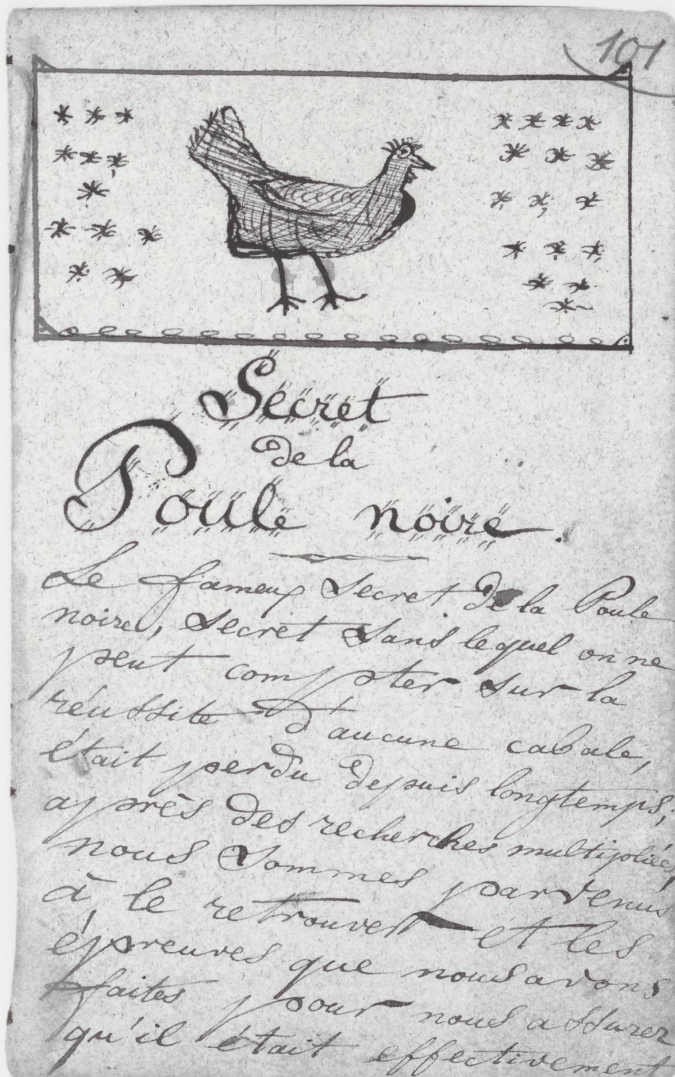 101
Secret
de la
Poule noire.
Le fameux secret de la Poule
noire, secret sans lequel on ne
peut compter sur la
réussite d'aucune cabale,
était perdu depuis longtemps;
après des recherches multipliées,
nous sommes parvenus
à le retrouver et les
épreuves que nous avons
faites pour nous assurer
qu'il était effectivement